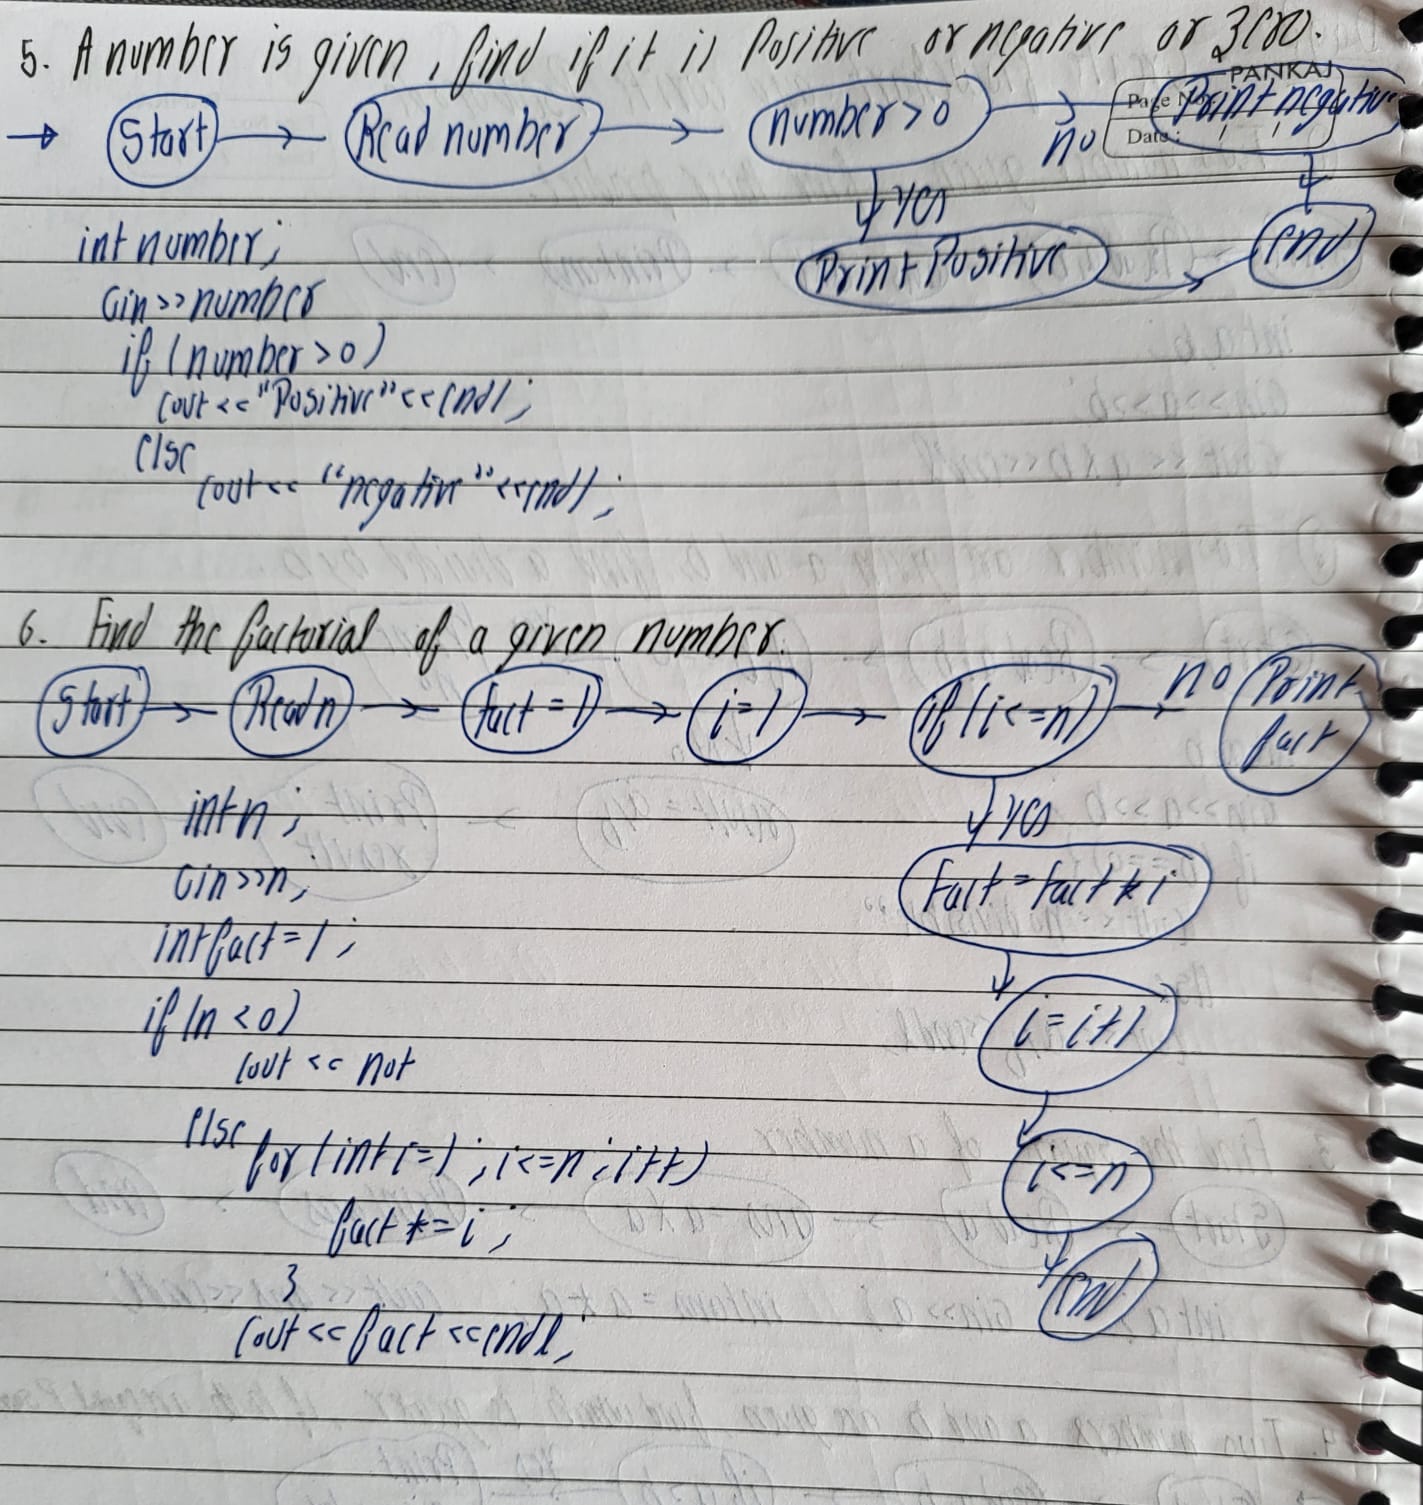 5. A number is given, find if it is Positive or negative or zero.
PANKAJ
Page No.
Date: / /
→ Start → Read number → number > 0 → no Print negative
↓ yes ↓
Print Positive → end
int number;
Cin >> number
if (number > 0)
cout << "Positive" << endl;
else
cout << "negative" << endl;
6. Find the factorial of a given number.
Start → Read n → fact = 1 → i = 1 → if (i <= n) → no Print fact
↓ yes
fact = fact * i
↓
i = i + 1
↓
i <= n
↓
end
int n;
Cin >> n;
int fact = 1;
if (n < 0)
cout << not
else
for (int i = 1; i <= n; i++)
fact *= i;
}
cout << fact << endl;